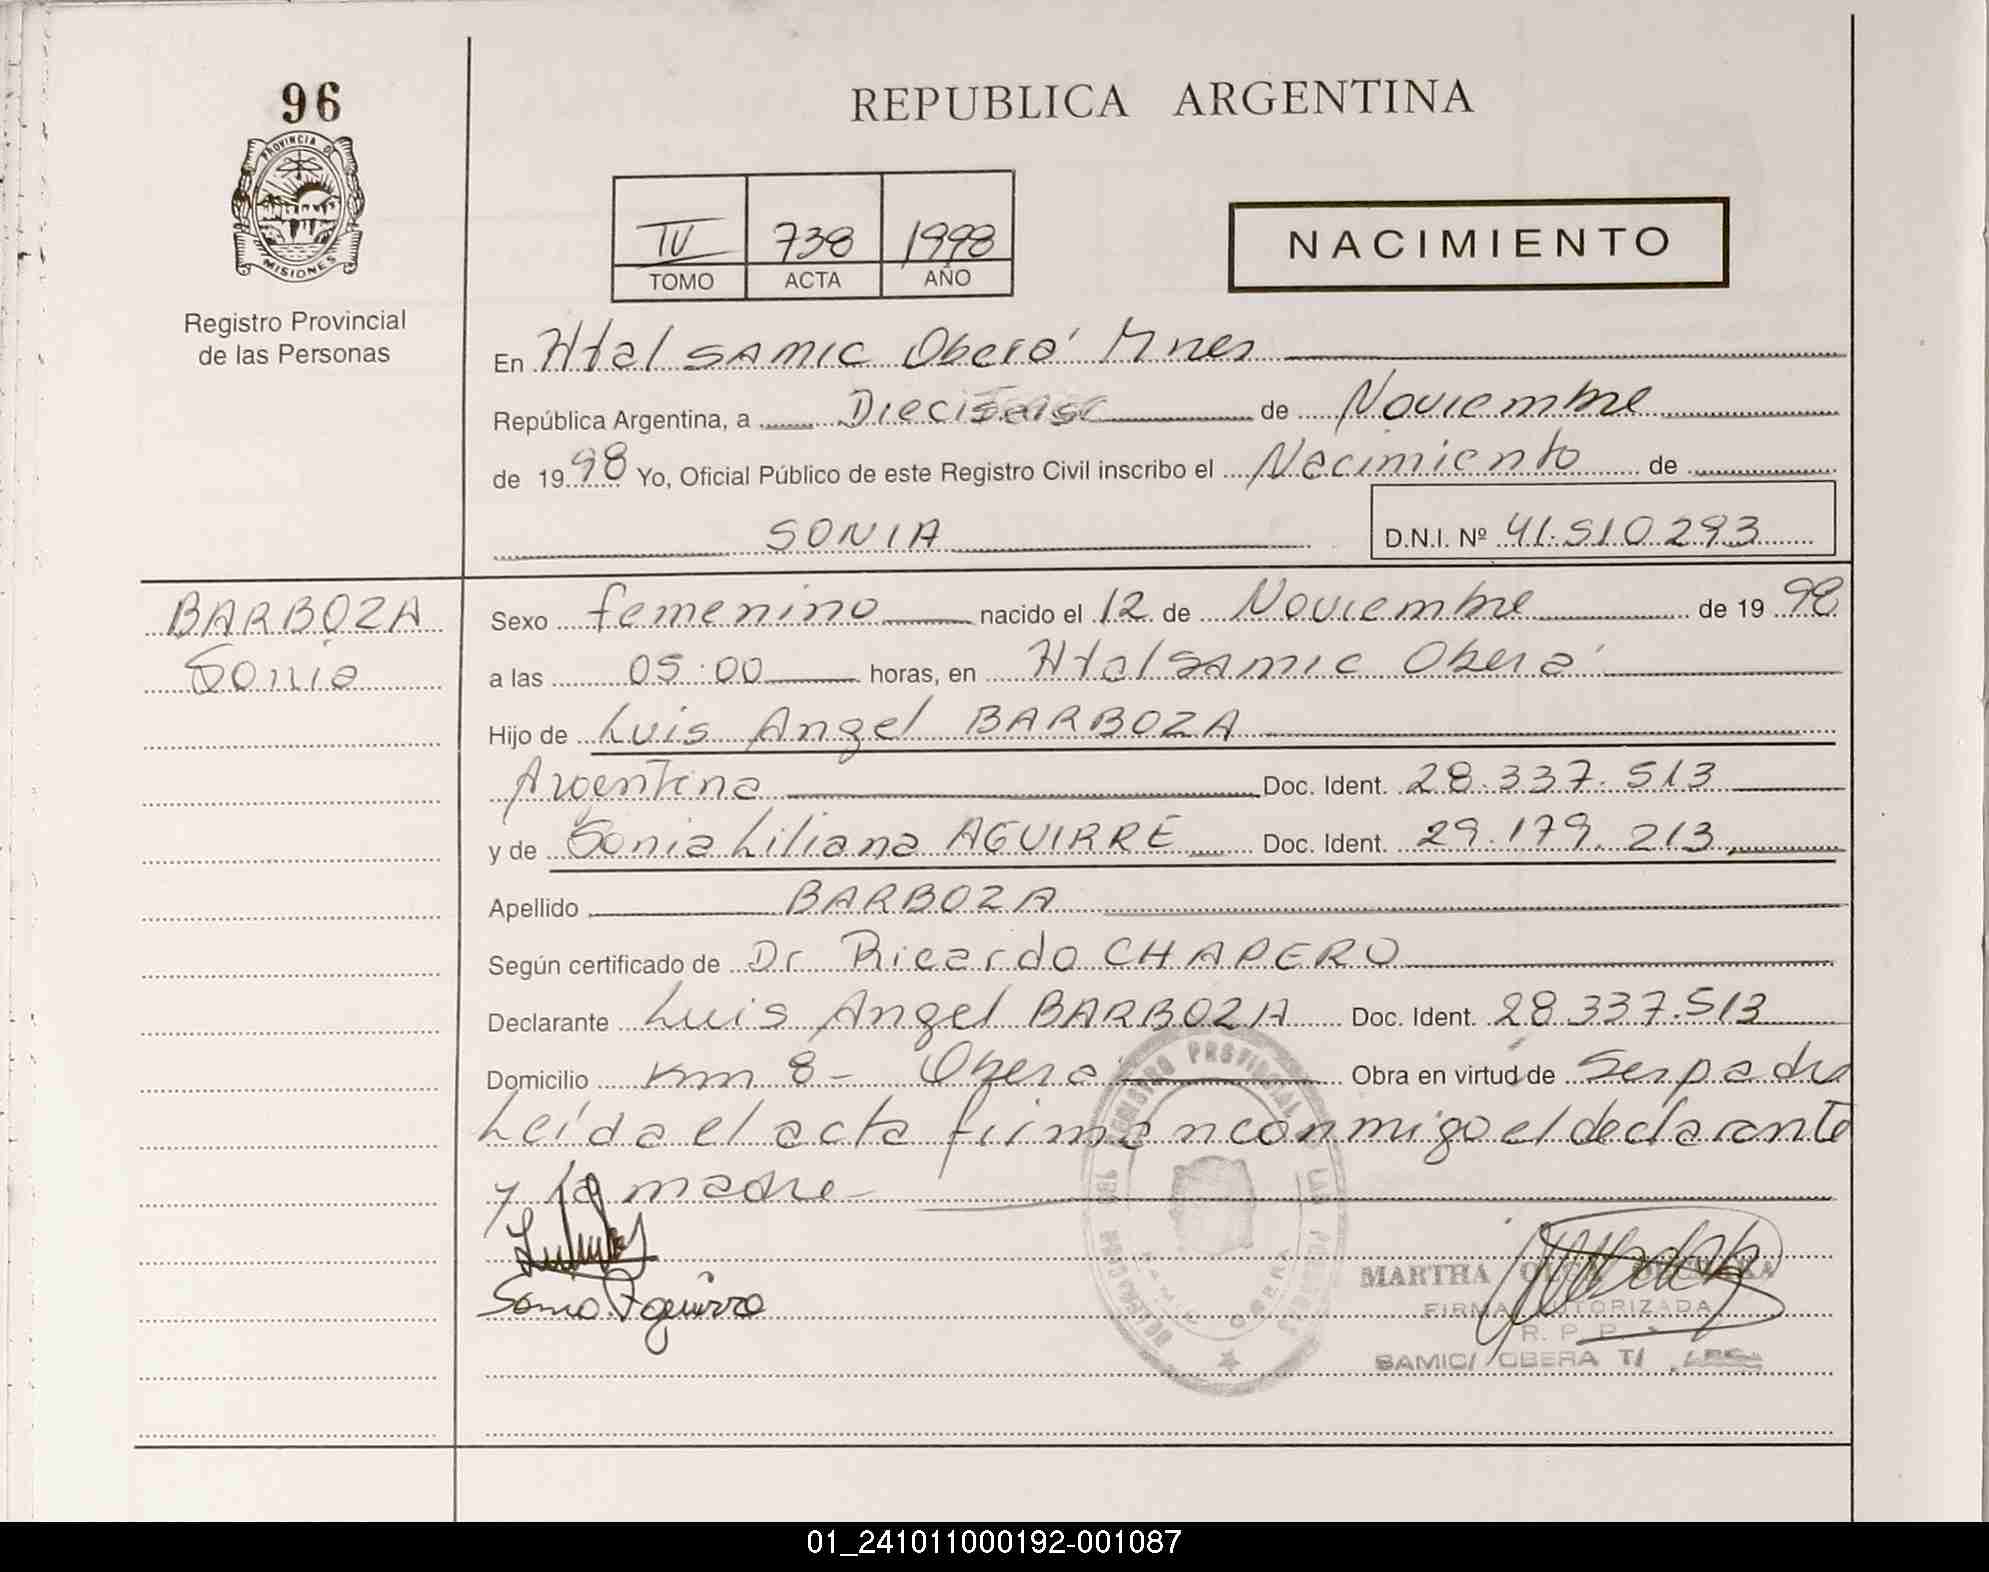 96
REPUBLICA ARGENTINA
PROVINCIA DE
MISIONES
Registro Provincial
de las Personas
IV 738 1998
TOMO ACTA AÑO
NACIMIENTO
En Htal SAMIC Oberá Mnes
República Argentina, a Dieciseis de Noviembre
de 1998 Yo, Oficial Público de este Registro Civil inscribo el Nacimiento de
SONIA D.N.I. Nº 41.510.293
BARBOZA
Sonia
Sexo femenino nacido el 12 de Noviembre de 1998
a las 05:00 horas, en Htal SAMIC Oberá
Hijo de Luis Angel BARBOZA
Argentina Doc. Ident. 28.337.513
y de Sonia Liliana AGUIRRE Doc. Ident. 29.179.213
Apellido BARBOZA
Según certificado de Dr Ricardo CHAPERO
Declarante Luis Angel BARBOZA Doc. Ident. 28.337.513
Domicilio Km 8 - Oberá Obra en virtud de Ser padre
Leída el acta firman conmigo el declarante
y la madre
Sonia Aguirre
REGISTRO PROVINCIAL DE LAS PERSONAS
MARTHA
FIRMA AUTORIZADA
R. P. P.
SAMIC/ OBERA T/
01_241011000192-001087